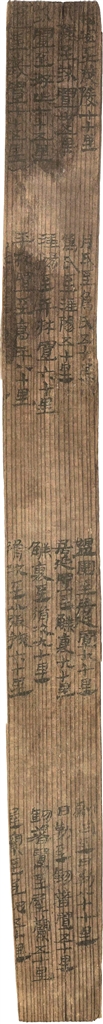 長安至茂陵七十里
茂陵至茯置卅五里
茯置至好止七十五里
好止至義置七十五里
月氏至烏氏五十里
烏氏至涇陽五十里
涇陽至平林置六十里
平林置至高平八十里
媼圍至居延置九十里
居延置至觻里九十里
觻里至揟次九十里
揟次至小張掖六十里
刪丹至日勒八十七里
日勒至鈞耆置五十里
鈞耆置至屋蘭五十里
屋蘭至氐池五十里